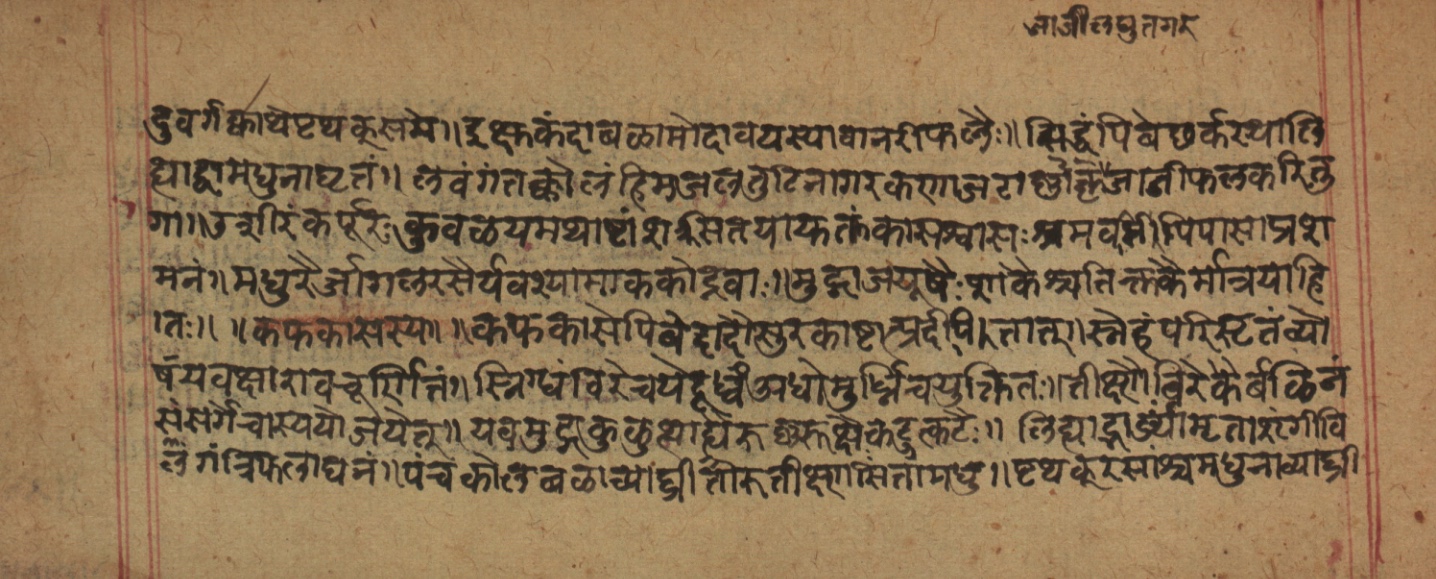 जाजीलघुतगर
दुवर्गक्वाथेष्टथकूसमे॥इक्ष्मकंदाबळामोदावयस्यावानरीफलैः॥सिद्धंपिबेछर्करयाति
ह्याद्वामधुनाघृतं॥लवंगंतक्कोलंहिमजलतुटिनागरकणाजटा जातीफलकरितु
गा॥उशीरंकर्पूरःकुवळयमथाष्टांशसितयायक्तंकासश्वासःश्रमवमीपिपासाप्रश
मनं॥मधुरैर्जांगलरसैर्यवश्यामाककोद्रवाः॥मुद्गाजयूषैःशाकैश्चतिक्तकैर्मात्रयाहि
तः॥॥कफकासस्य॥॥कफकासेपिबेदादौसुरकाष्टात्प्रदीपितात्॥स्नेहंपरिस्टतंव्यो
षयवक्षारावचूर्णितं॥स्निग्धंविरेचयेदूर्ध्वंअधोमुर्ध्निचयुक्तितः॥तीक्ष्णैविरेकैर्बळिनं
संसर्गंचास्ययोजयेत्॥यवमुद्गकुळुथ्थाद्यैरू कटुत्कटैः॥लिह्याद्रा मृताशृंगीवि
लंगंत्रिफलाघनं॥पंचकोलबळाव्याघ्री तीक्ष्णासितामधु॥ष्टथक्रसांश्चमधुनाव्याघ्री